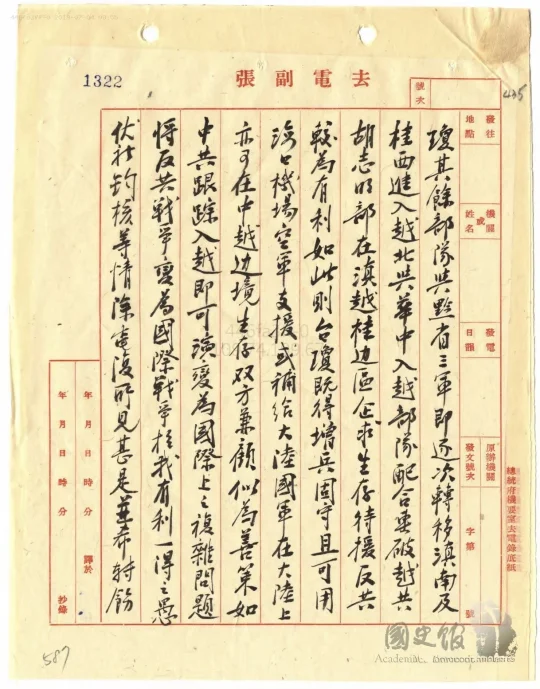 去電副張
1322
號次
435
總統府機要室去電錄底紙
發往地點
機關或姓名
發電日韻
原辦機關
發文號次 字第 號
瓊其餘部隊與黔省三軍即逐次轉移滇南及
桂西進入越北與華中入越部隊配合擊破越共
胡志明部在滇越桂邊區企求生存待援反共
較為有利如此則台瓊既得增兵固守且可用
海口機場空軍支援或補給大陸國軍在大陸上
亦可在中越边境生存双方兼顧似為善策如
中共跟踪入越即可演變為國際上之複雜問題
將反共戰爭變為國際戰爭於我有利一得之愚
伏祈鈞核等情除電復所見甚是並希轉飭
年月日時分 譯於
年月日時分 抄錄
587
國史館